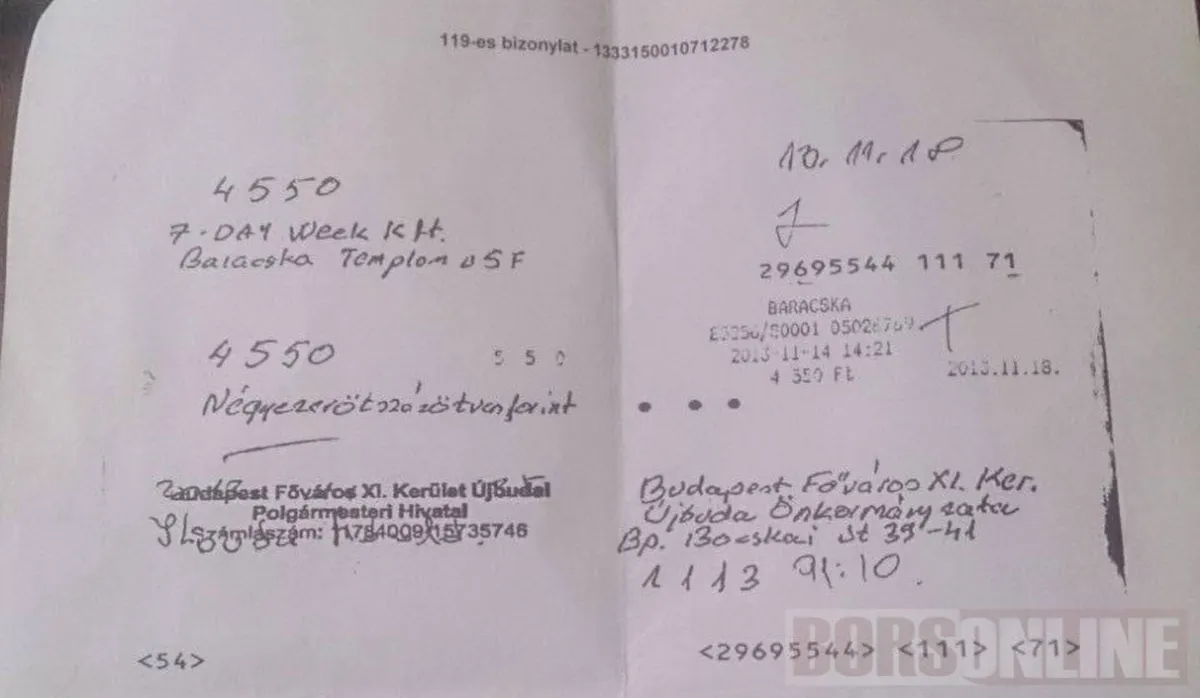 119-es bizonylat - 1333150010712278
4550
7-DAY Week Kft.
Baracska Templom u 5 F
4550
5 5 0
Négyezerötszázötvenforint
Budapest Főváros XI. Kerület Újbudai
Polgármesteri Hivatal
Számlaszám:
<54>
10. 11. 18
29695544 111 71
BARACSKA
2013-11-14 14:21
4 550 Ft
2013.11.18.
Budapest Főváros XI. Ker.
Újbuda Önkormányzata
Bp. Bocskai út 39-41
1113
<29695544> <111> <71>
BORSONLINE